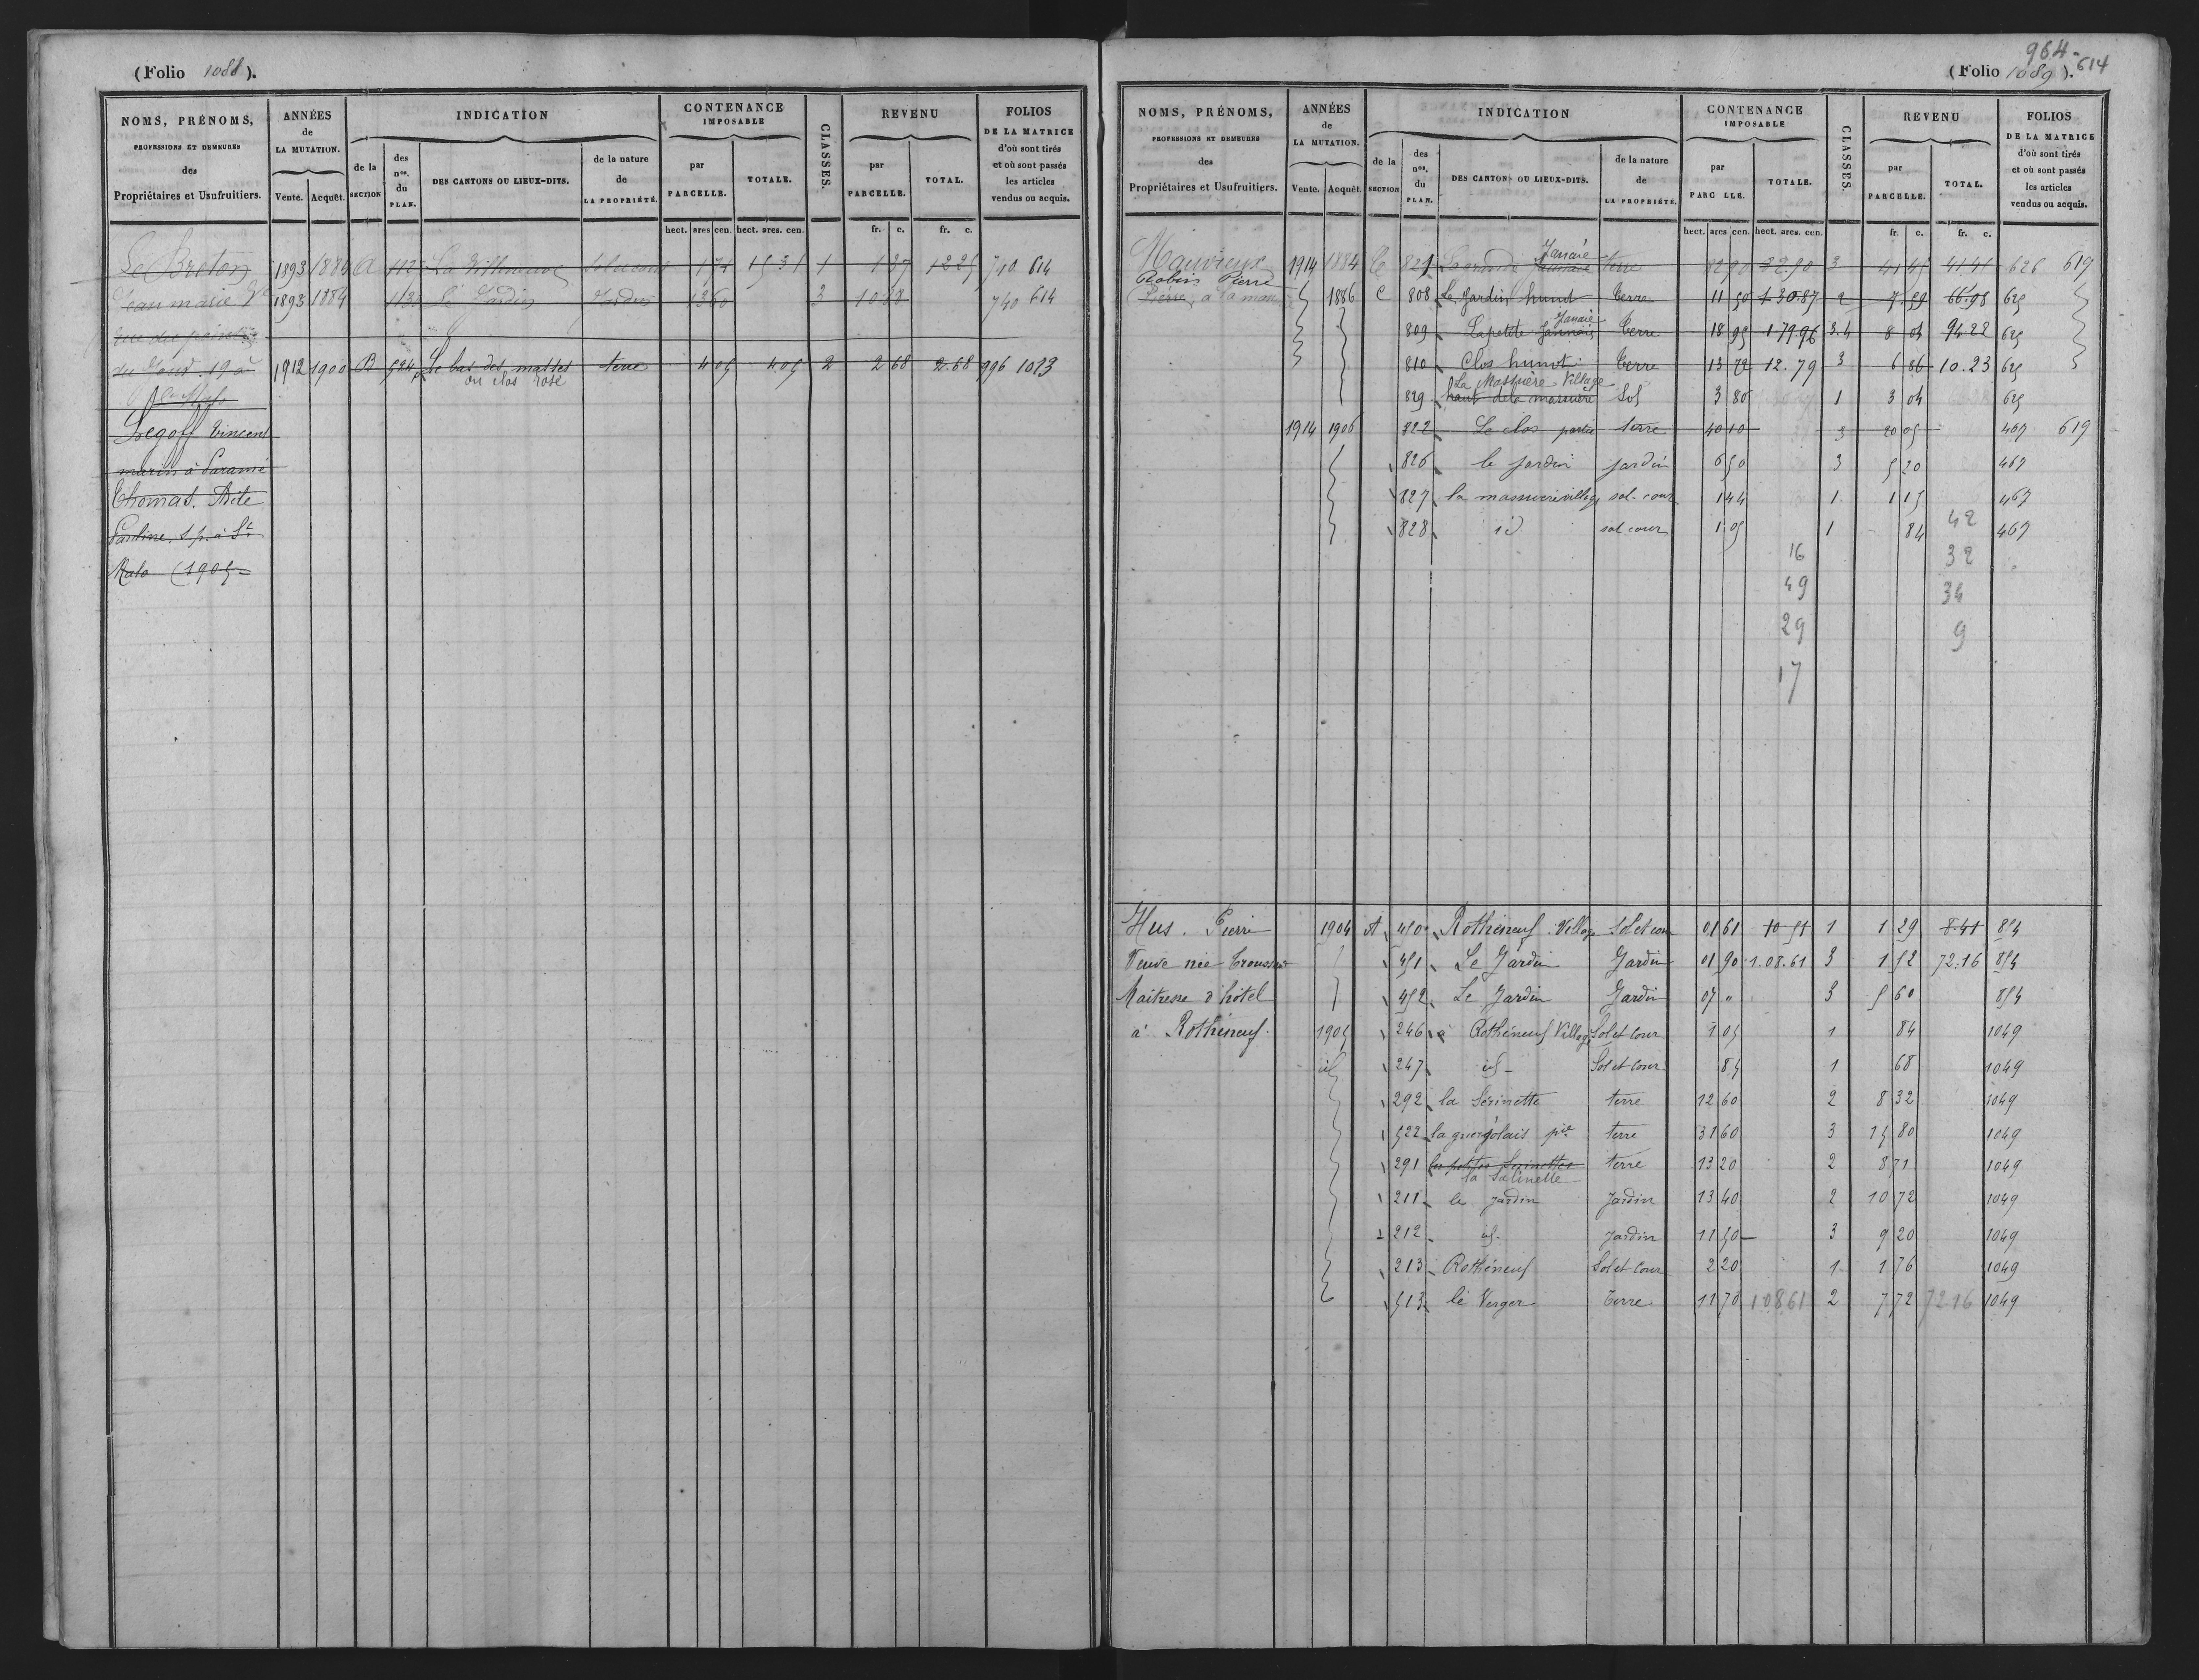 (Folio 1088).
NOMS, PRÉNOMS, PROFESSIONS ET DEMEURES des Propriétaires et Usufruitiers.
ANNÉES de LA MUTATION. Vente. Acquêt.
INDICATION de la SECTION des nos. du PLAN. DES CANTONS OU LIEUX-DITS. de la nature de LA PROPRIÉTÉ.
CONTENANCE IMPOSABLE par PARCELLE. TOTALE.
CLASSES.
REVENU par PARCELLE. TOTAL.
FOLIOS DE LA MATRICE d'où sont tirés et où sont passés les articles vendus ou acquis.
hect. ares cen. hect. ares. cen. fr. c. fr. c.
Le Breton 1893 1884 A La Villeneuve Sol et cour 1 71 15 31 1 1 37 12 25 740 614
Jean marie 1893 1884 le Jardin Jardin 13 60 3 10 88 740 614
1912 1900 B 524 p Le bas des mattes terre 4 05 4 05 2 2 68 2.68 996 1013
ou clos rose
St Malo
Legoff Vincent
marin à Paramé
Thomas
Pauline s.p. à St
Malo (1905
964 - 614
(Folio 1089).
NOMS, PRÉNOMS, PROFESSIONS ET DEMEURES des Propriétaires et Usufruitiers.
ANNÉES de LA MUTATION. Vente. Acquêt.
INDICATION de la SECTION des nos. du PLAN. DES CANTONS OU LIEUX-DITS. de la nature de LA PROPRIÉTÉ.
CONTENANCE IMPOSABLE par PARC LLE. TOTALE.
CLASSES.
REVENU par PARCELLE. TOTAL.
FOLIOS DE LA MATRICE d'où sont tirés et où sont passés les articles vendus ou acquis.
hect. ares cen. hect. ares. cen. fr. c. fr. c.
Mauvieux 1914 1884 C 821 La grande Janaie terre 82 90 82.90 3 41 45 626 619
Robin Pierre
Pierre, à la 1886 C 808 Le Jardin hunot terre 11 50 1.30.87 2 7 59 66.98 625
809 La petite Janaie terre 18 95 1 79.96 3.4 8 04 94 22 625
810 Clos hunot terre 13 72 12.79 3 6 86 10.23 625
La Massuère Village
829 haut de la massuère Sol 3 80 1 3 04 625
1914 1906 822 Le clos partie terre 40 10 3 20 05 467 619
826 le jardin jardin 6 50 3 5 20 467
827 la massuère village sol. cour 1 44 1 1 15 467
828 id sol cour 1 05 1 84 42 467
16 32
49 34
29 9
17
Hus. Pierre 1904 A 450 Rothéneuf. Village Sol et cour 01 61 10 51 1 1 29 8.41 854
Veuve née 451 Le Jardin Jardin 01 90 1.08.61 3 1 52 72.16 854
Maitresse d'hôtel 452 Le Jardin Jardin 07 " 3 5 60 854
à Rothéneuf. 1905 246 à Rothéneuf Village Sol et Cour 1 05 1 84 1049
id 247 id - Sol et Cour 85 1 68 1049
292 la Sérinette terre 12 60 2 8 32 1049
522 la pie terre 31 60 3 15 80 1049
291 les petites Serinettes terre 13 20 2 8 71 1049
la Salinette
211 le Jardin Jardin 13 40 2 10 72 1049
212 id - Jardin 11 50 3 9 20 1049
213 Rothéneuf Sol et Cour 2 20 1 1 76 1049
513 le Verger Terre 11 70 1 08 61 2 7 72 72 16 1049